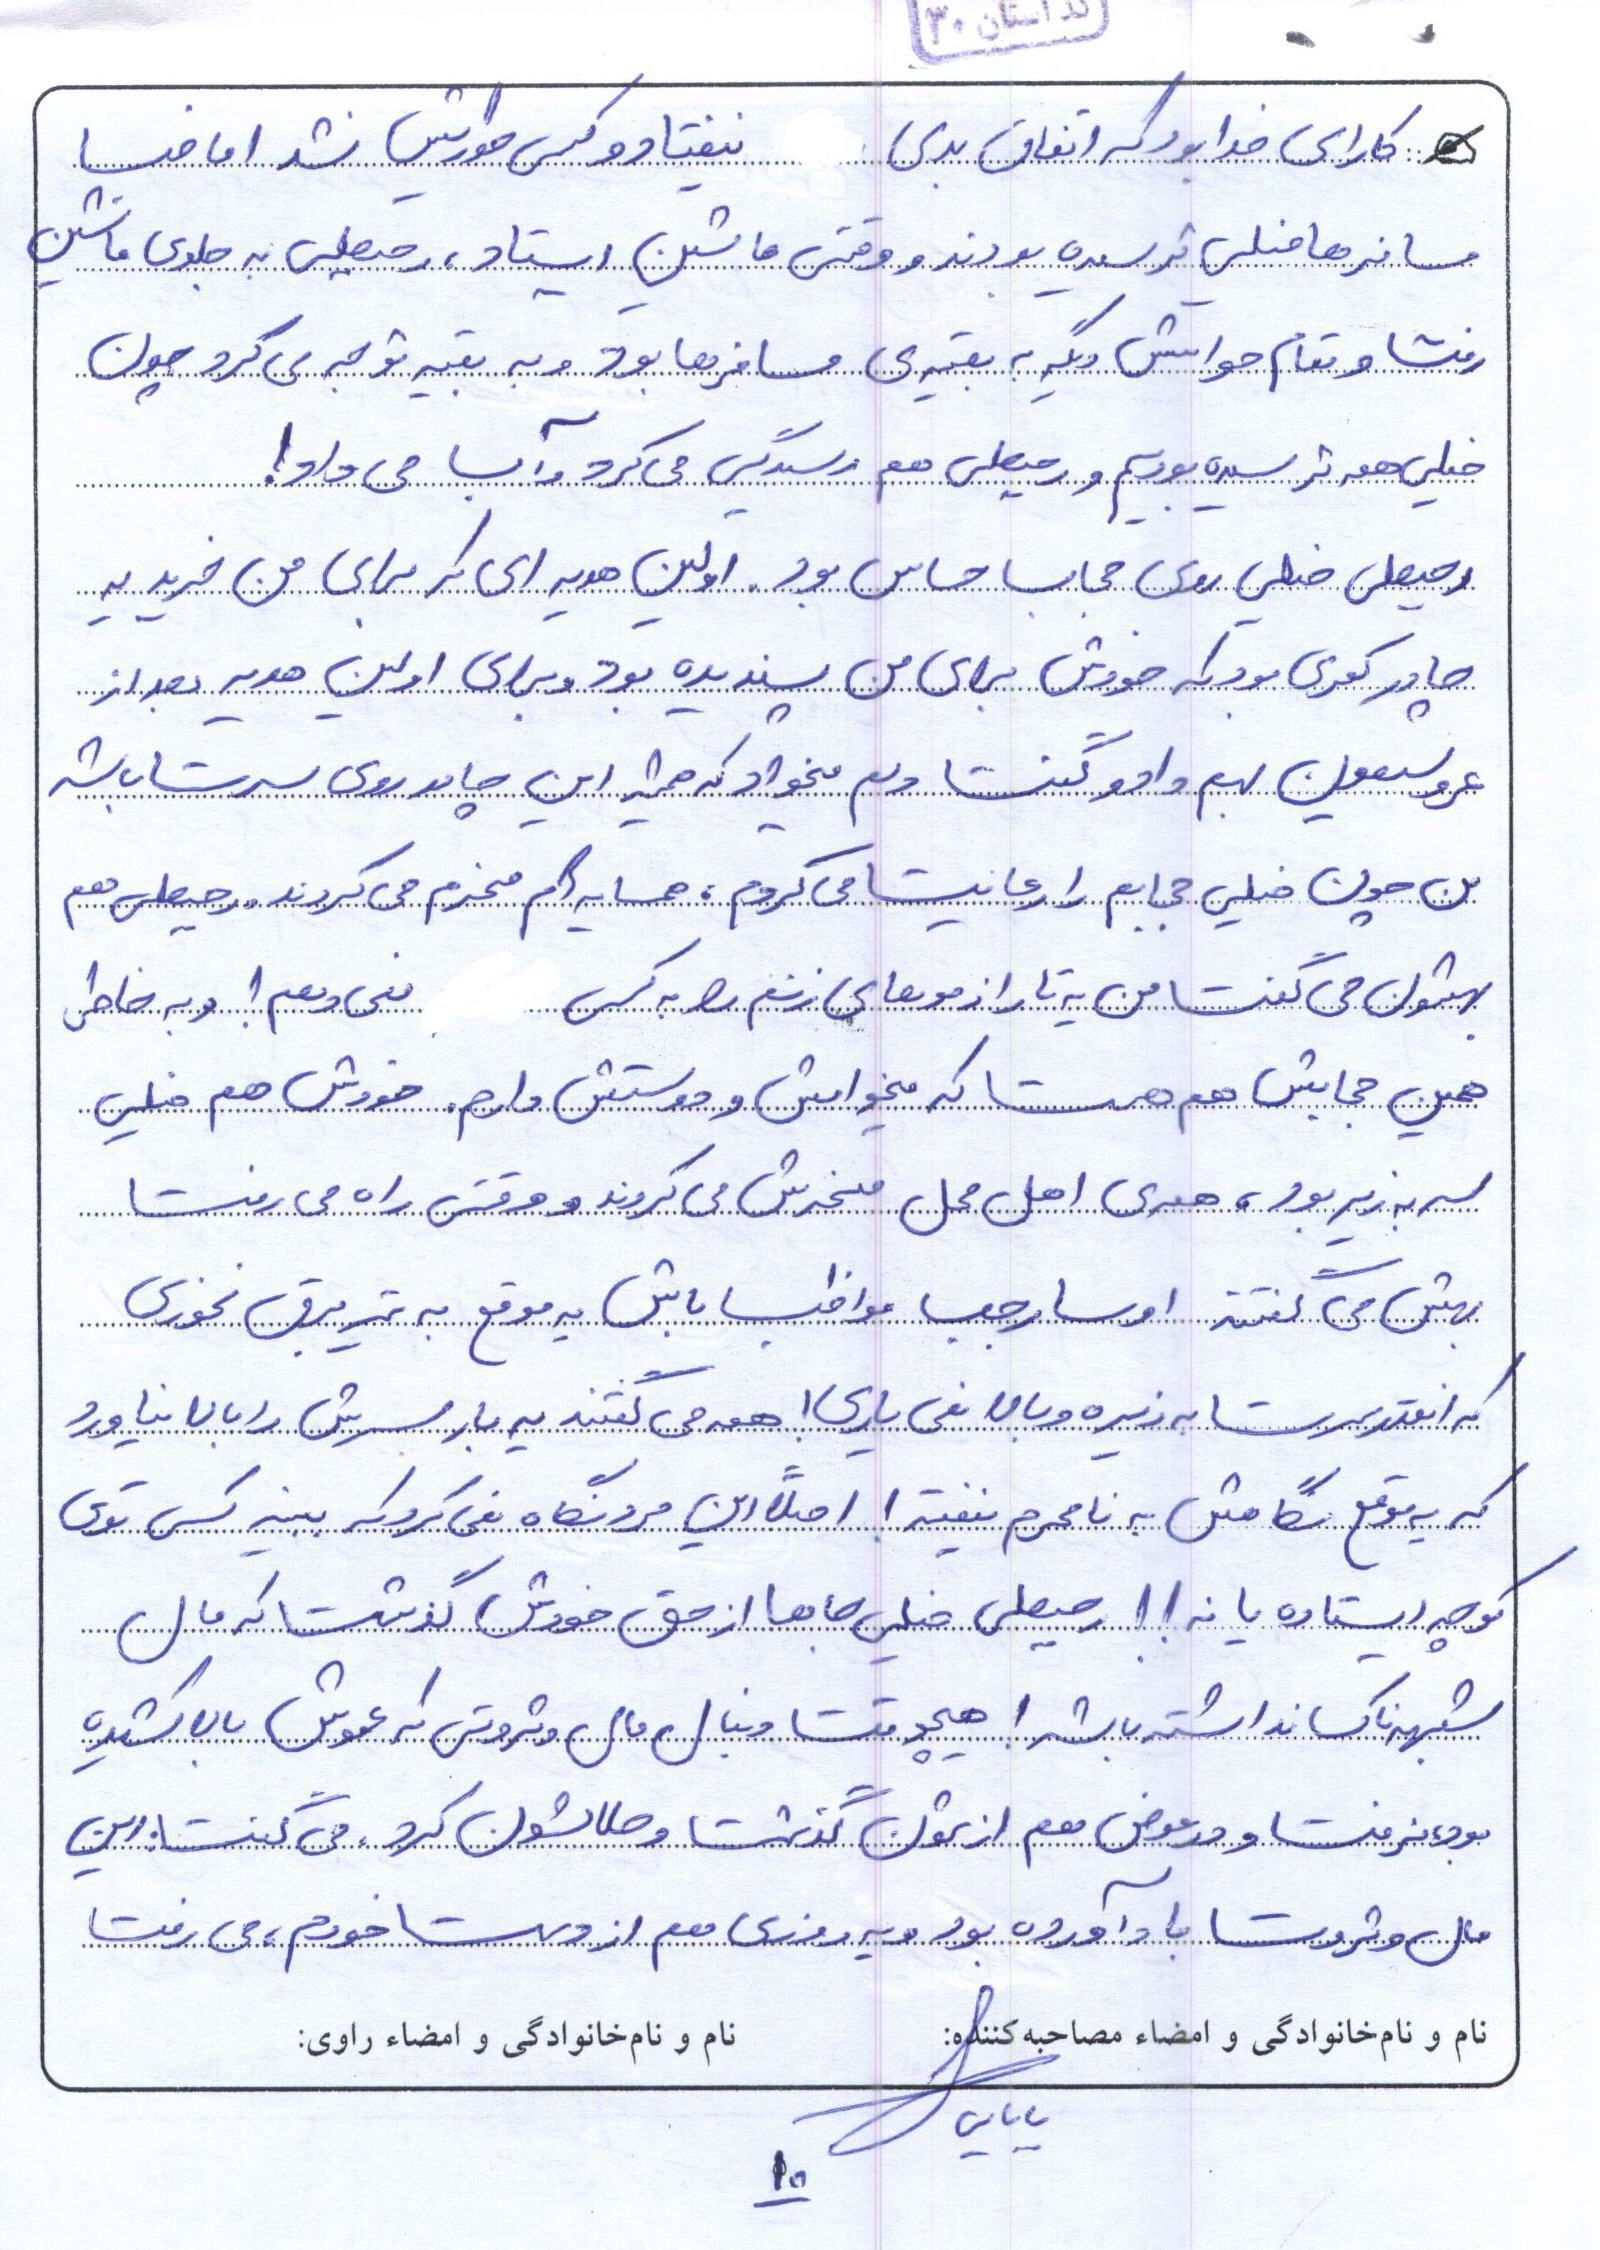 کد استان ۳۰
کارای خدا بود که اتفاق بدی نیفتاد و کسی طوریش نشد اما خب
مسافرها خیلی ترسیده بودند و وقتی ماشین ایستاد، رجبعلی به جلوی ماشین
رفت و تمام حواسش دیگه به بقیه‌ی مسافرها بود و به بقیه توجه می‌کرد چون
خیلی همه ترسیده بودیم و رجبعلی هم رسیدگی می‌کرد و آب می‌داد!
رجبعلی خیلی روی حجاب حساس بود. اولین هدیه‌ای که برای من خرید یه
چادر کمری بود که خودش برای من پسندیده بود و برای اولین هدیه بعد از
عروسیمون بهم داد و گفت دلم میخواد که همیشه این چادر روی سرت باشه
من چون خیلی حجابم را رعایت می‌کردم، همسایه‌ام مسخرم می‌کردند. رجبعلی هم
بهشون می‌گفت من یه تار از موهای زنم را به کسی نمی‌دهم! و به خاطر
همین حجابش هم هست که میخوامش و دوستش دارم. خودش هم خیلی
سر به زیر بود، همه‌ی اهل محل مسخرش می‌کردند و وقتی راه می‌رفت
بهش می‌گفتند اوسا رجب مواظب باش یه موقع به تیر برق نخوری
که انقدر سرت به زیره و بالا نمی‌یاری! همه می‌گفتند یه بار سرش را بالا نیاورد
که یه موقع نگاهش به نامحرم نیفته! اصلاً این مرد نگاه نمی‌کرد که ببینه کسی توی
کوچه ایستاده یا نه!! رجبعلی خیلی جاها از حق خودش گذشت که مال
شبهه‌ناک نداشته باشه! هیچوقت دنبال مال و ثروتی که عموش بالا کشیده
بود، نرفت و در عوض هم ازشون گذشت و حلالشون کرد، می‌گفت: این
مال و ثروت بادآورده بود و یه روزی هم از دست خودم، می‌رفت
نام و نام‌خانوادگی و امضاء مصاحبه‌کننده: نام و نام‌خانوادگی و امضاء راوی:
بابایی
۱۵